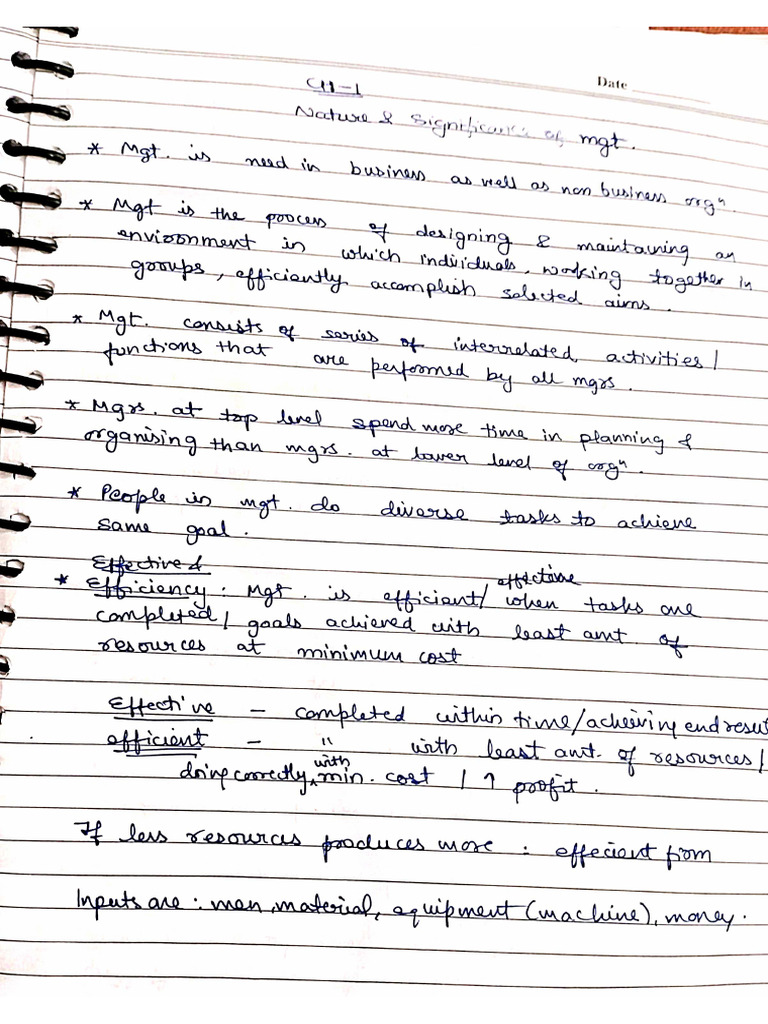 Date
CH-1
Nature & Significance of mgt.
* Mgt. is need in business as well as non business orgⁿ.
* Mgt is the process of designing & maintaining an
environment in which individuals, working together in
groups, efficiently accomplish selected aims.
* Mgt. consists of series of interrelated activities/
functions that are performed by all mgrs.
* Mgrs. at top level spend more time in planning &
organising than mgrs. at lower level of orgⁿ.
* People in mgt. do diverse tasks to achieve
same goal.
Effective &
* Efficiency : Mgt. is efficient/ effective when tasks are
completed/ goals achieved with least amt. of
resources at minimum cost
Effective – completed within time/acheiving end resut
efficient – " with least amt. of resources/
doing correctly, with min. cost / ↑ profit.
If less resources produces more : effecient firm
Inputs are : men, material, equipment (machine), money.